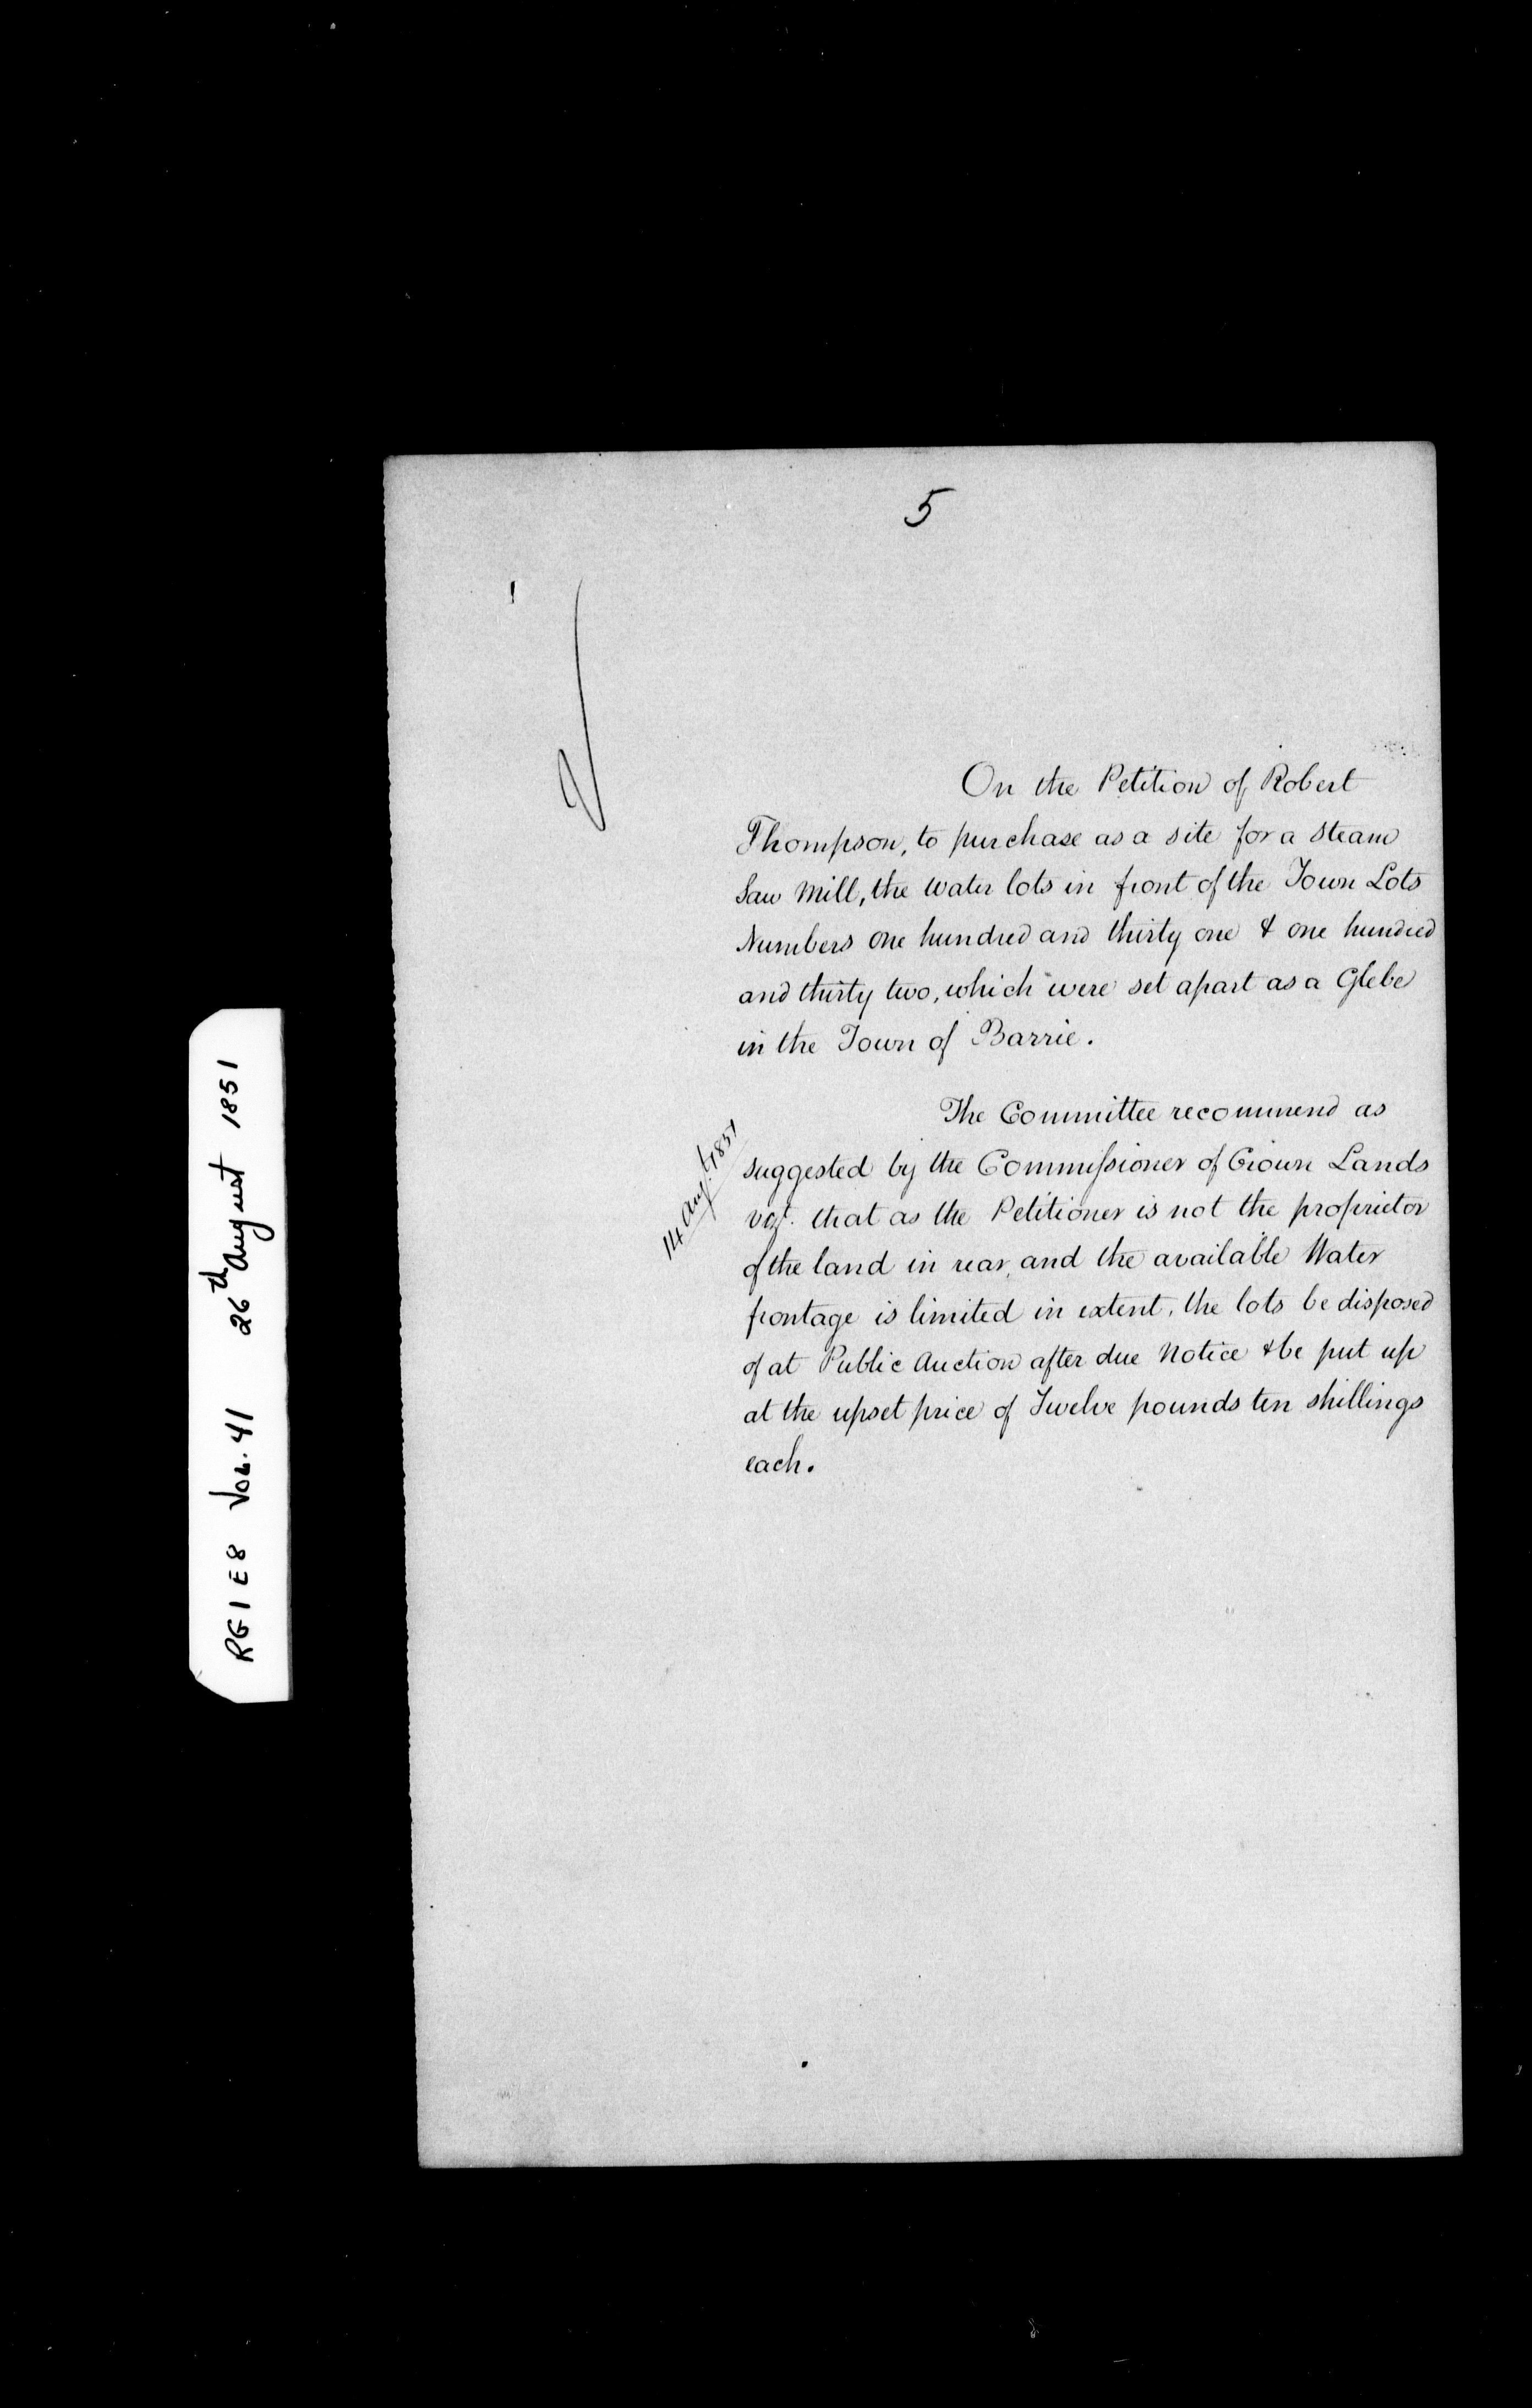 5
On the Petition of Robert
Thompson, to purchase as a site for a steam
Saw Mill, the water lots in front of the Town Lots
Numbers one hundred and thirty one & one hundred
and thirty two, which were set apart as a Glebe
in the Town of Barrie.
The Committee recommend as
14 Augt. 1851
suggested by the Commissioner of Crown Lands
vizt. that as the Petitioner is not the proprietor
of the land in rear, and the available Water
frontage is limited in extent, the lots be disposed
of at Public Auction after due Notice & be put up
at the upset price of Twelve pounds ten shillings
each.
RG1 E8 VOL. 41 26th August 1851